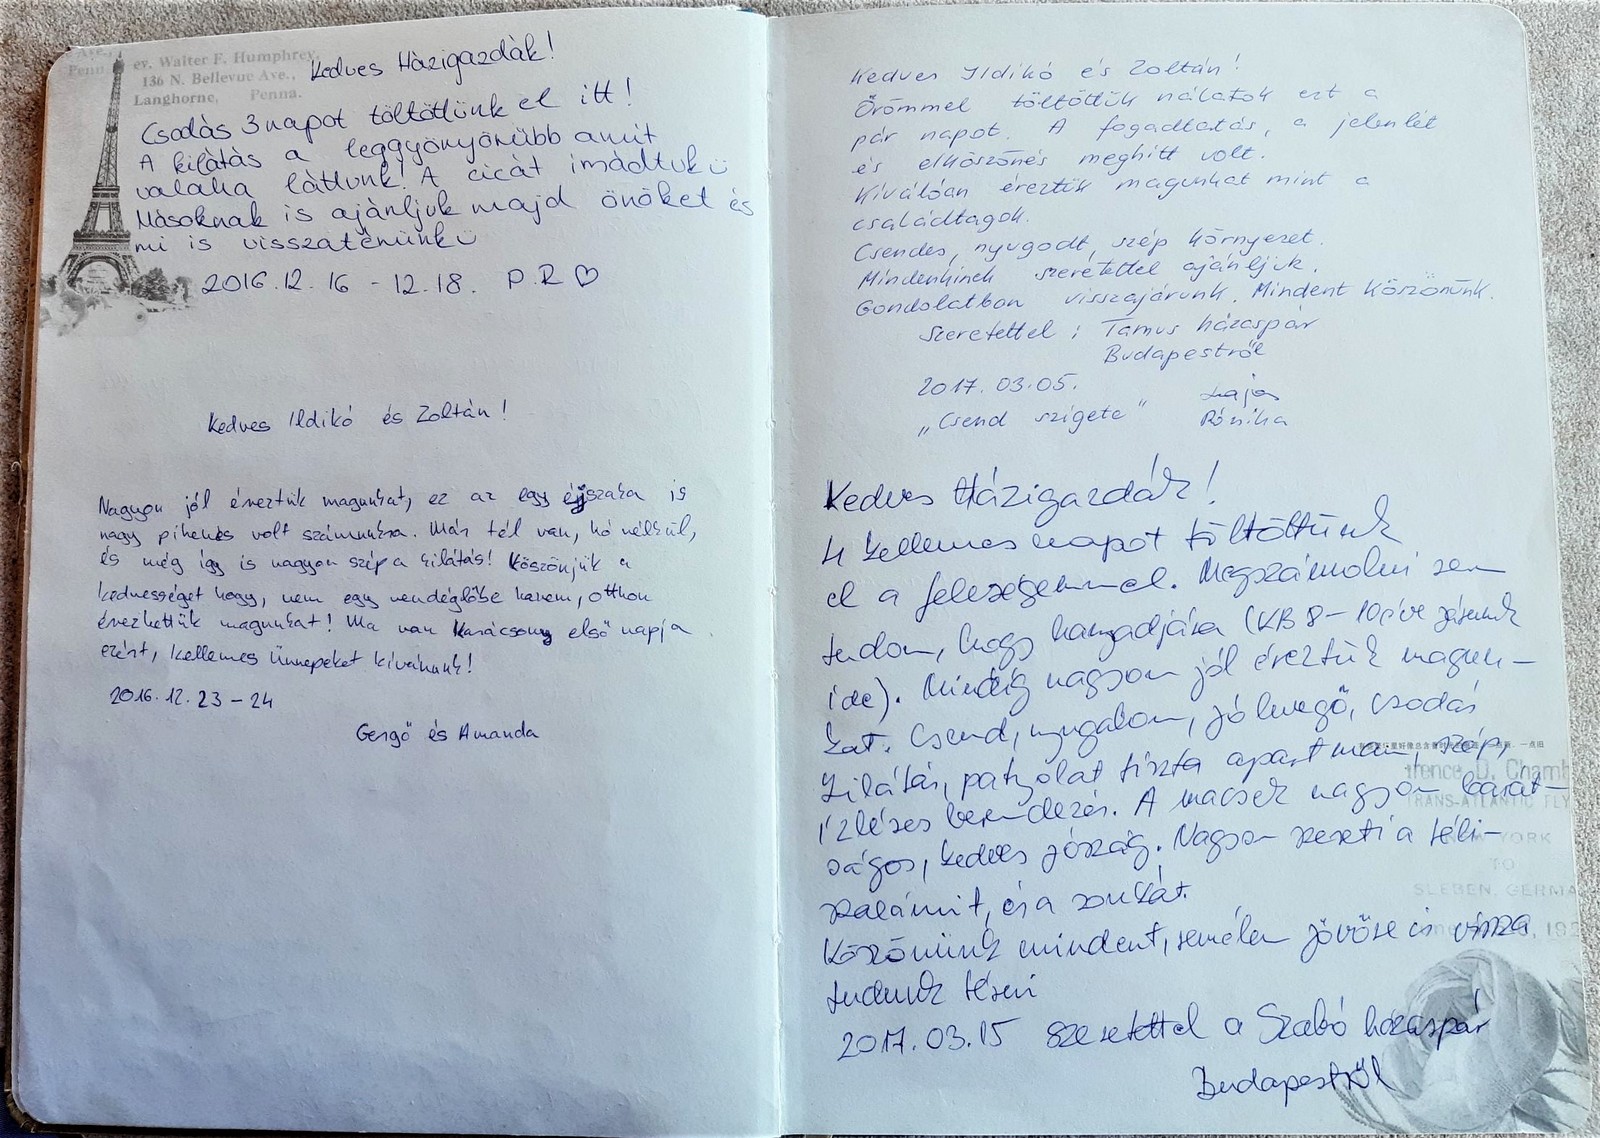 ev. Walter F. Humphrey,
136 N. Bellevue Ave.,
Langhorne, Penna.
Kedves Házigazdák!
Csodás 3 napot töltöttünk el itt!
A kilátás a leggyönyörűbb amit
valaha láttunk! A cicát imádtuk ü
Másoknak is ajánljuk majd önöket és
mi is visszatérünk ü
2016.12.16 - 12.18. P.R ♡
Kedves Ildikó és Zoltán!
Nagyon jól éreztük magunkat, ez az egy éjszaka is
nagy pihenés volt számunkra. Már tél van, hó nélkül,
és még így is nagyon szép a kilátás! Köszönjük a
kedvességet hogy, nem egy vendéglőbe hanem, otthon
érezhettük magunkat! Ma van Karácsony első napja
ezért, kellemes ünnepeket kívánunk!
2016.12.23 - 24
Gergő és Amanda
Kedves Ildikó és Zoltán!
Örömmel töltöttük nálatok ezt a
pár napot. A fogadtatás, a jelenlét
és elköszönés meghitt volt.
Kiválóan éreztük magunkat mint a
családtagok.
Csendes, nyugodt, szép környezet.
Mindenkinek szeretettel ajánljuk.
Gondolatban visszajárunk. Mindent köszönünk.
Szeretettel: Tamus házaspár
Budapestről
2017.03.05. Lajos
„Csend szigete" Mónika
Kedves Házigazdák!
4 kellemes napot töltöttünk
el a feleségemmel. Megszámolni sem
tudom, hogy hanyadjára (KB 8-10 éve járunk
ide). Mindig nagyon jól éreztük magun-
kat. Csend, nyugalom, jó levegő, csodás
kilátás, patyolat tiszta apartman, szép,
ízléses berendezés. A macsek nagyon barát-
ságos, kedves jószág. Nagyon szereti a téli-
szalámit, és a sonkát.
Köszönünk mindent, remélem jövőre is vissza
tudunk térni
2017.03.15 Szeretettel a Szabó házaspár
Budapestről
rence D. Chamb
TRANS-ATLANTIC FLY
NEW YORK
TO
SLEBEN, GERMA